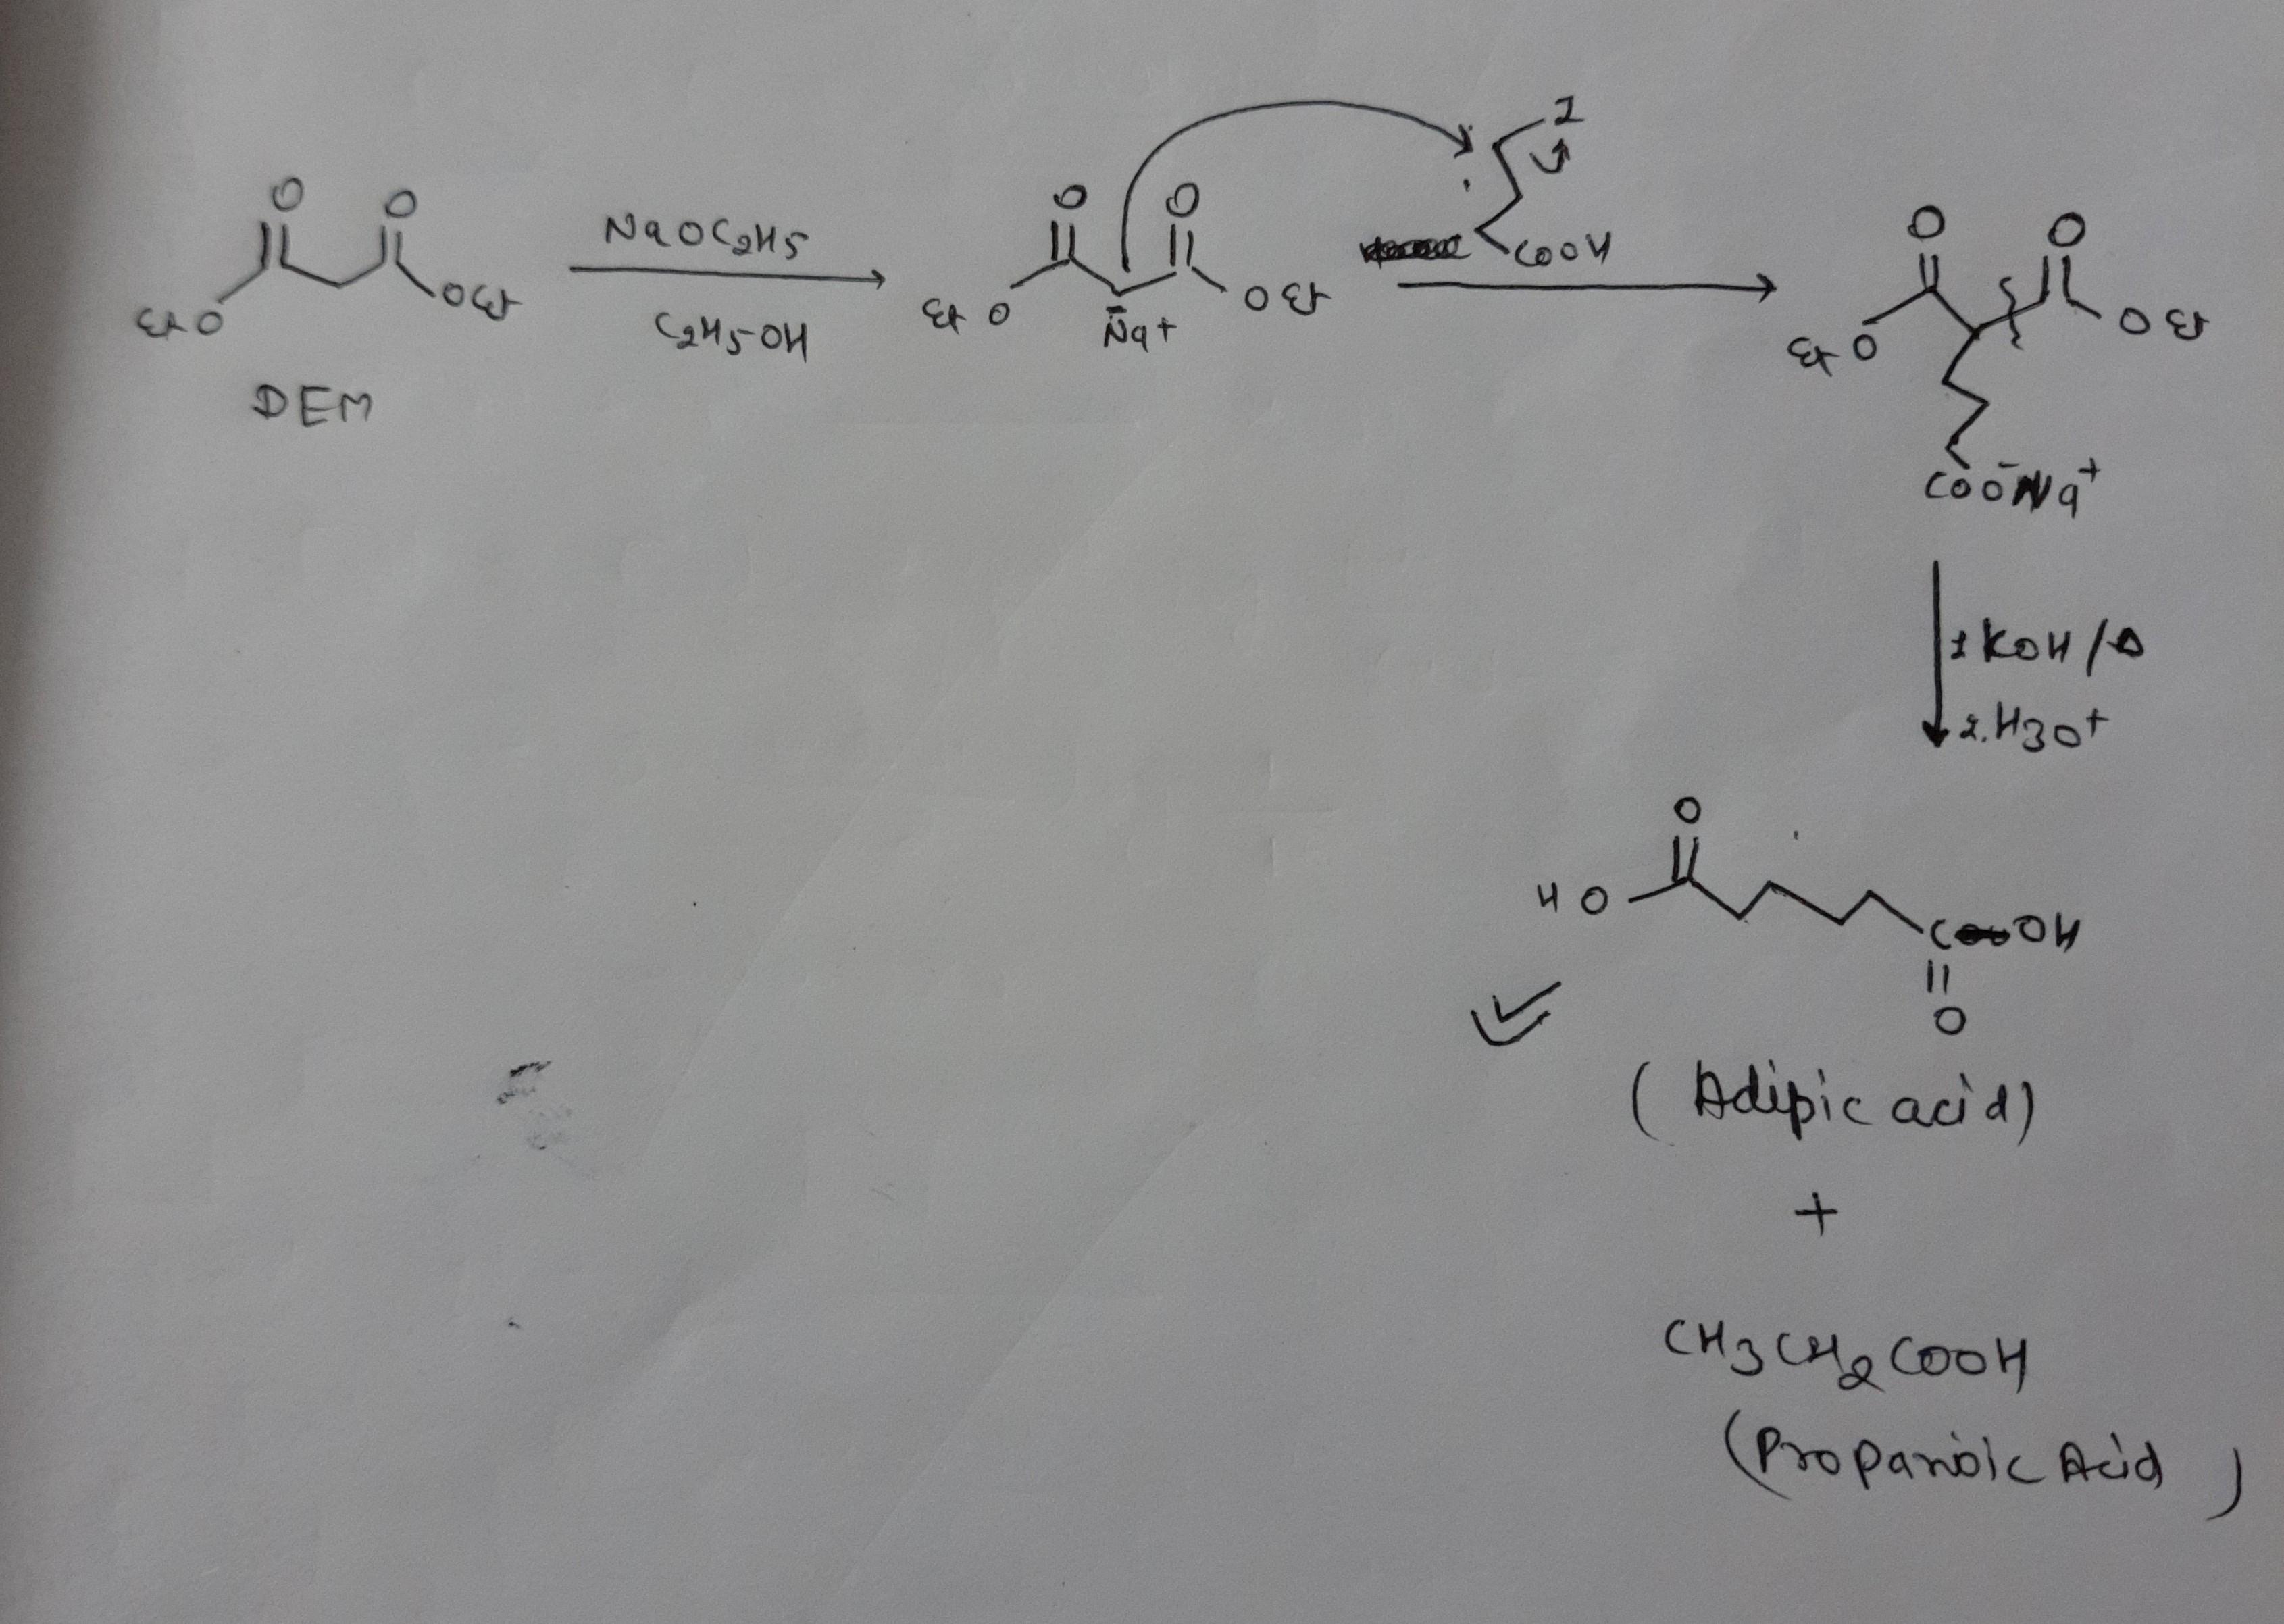 O O
EtO OEt
DEM
NaOC2H5
C2H5-OH
O O
EtO OEt
Na+
I
COOH
O O
EtO OEt
COO-Na+
1 KOH/Δ
2. H3O+
O
HO C OH
O
(Adipic acid)
+
CH3CH2COOH
(Propanoic Acid)